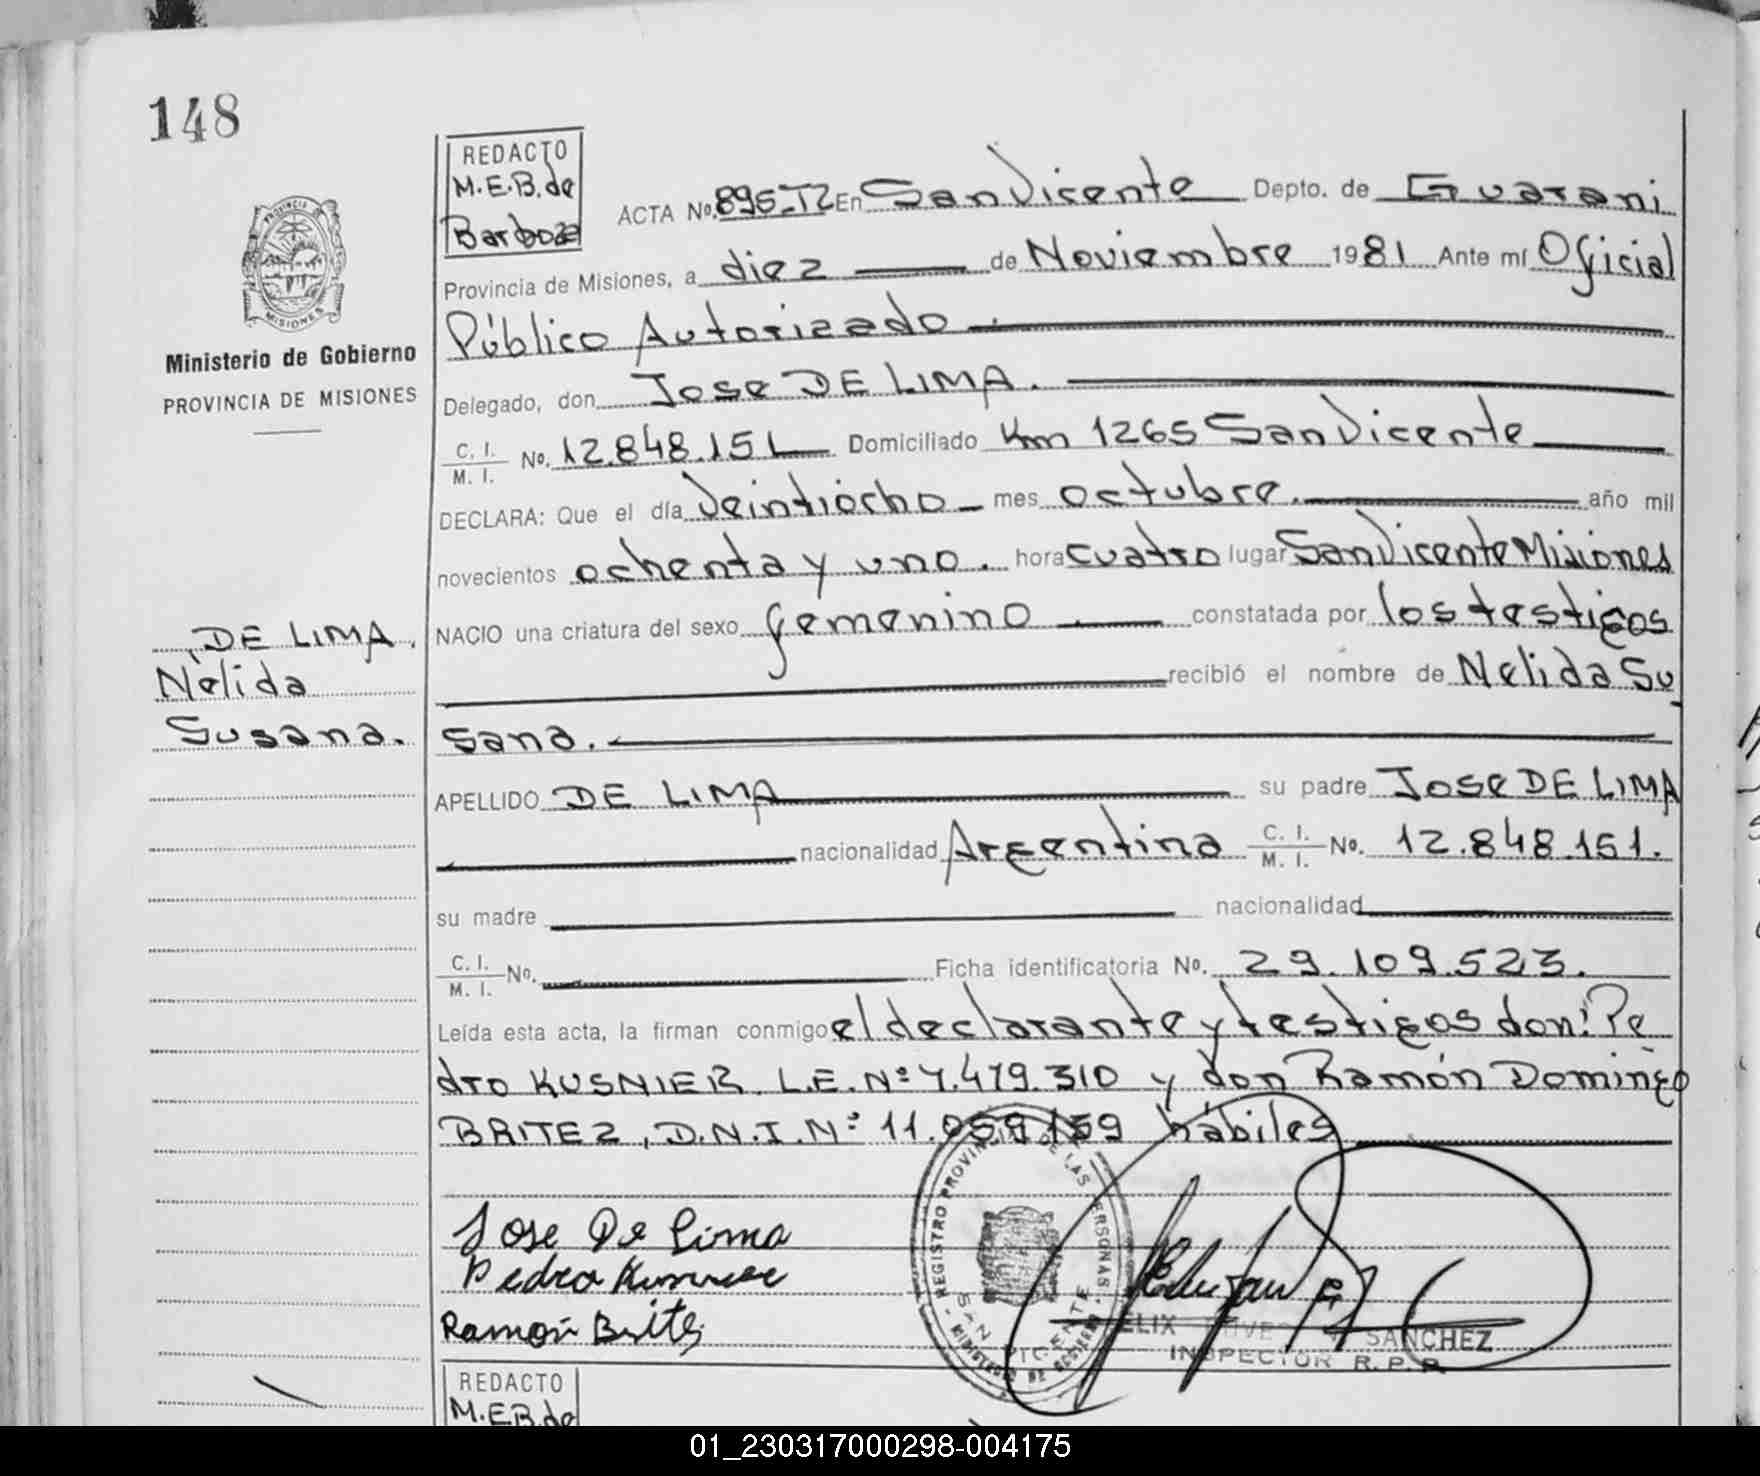 148
REDACTO
M.E.B. de
Barboza
ACTA No. 895-T2 En San Vicente Depto. de Guarani
Provincia de Misiones, a diez de Noviembre 1981 Ante mí Oficial
Público Autorizado.
Delegado, don Jose DE LIMA.
C. I.
M. I. No. 12.848.151 Domiciliado Km 1265 San Vicente
DECLARA: Que el día Veintiocho mes octubre. año mil
novecientos ochenta y uno. hora cuatro lugar San Vicente Misiones
NACIO una criatura del sexo femenino constatada por los testigos
recibió el nombre de Nelida Su
sana.
APELLIDO DE LIMA su padre Jose DE LIMA
nacionalidad Argentina C. I.
M. I. No. 12.848.151.
su madre nacionalidad
C. I.
M. I. No. Ficha identificatoria No. 29.109.523.
Leída esta acta, la firman conmigo el declarante y testigos don: Pe
dro KUSNIER L.E. Nº 7.479.310 y don Ramón Domingo
BRITEZ, D.N.I. Nº 11.059.159 hábiles
Jose De Lima
Pedro
Ramón Britez
PROVINCIA DE
MISIONES
Ministerio de Gobierno
PROVINCIA DE MISIONES
DE LIMA.
Nelida
Susana.
REGISTRO PROVINCIAL DE LAS PERSONAS
SAN VICENTE
MINISTERIO DE GOBIERNO
FELIX SANCHEZ
INSPECTOR R. P. P.
REDACTO
M.E.B. de
01_230317000298-004175